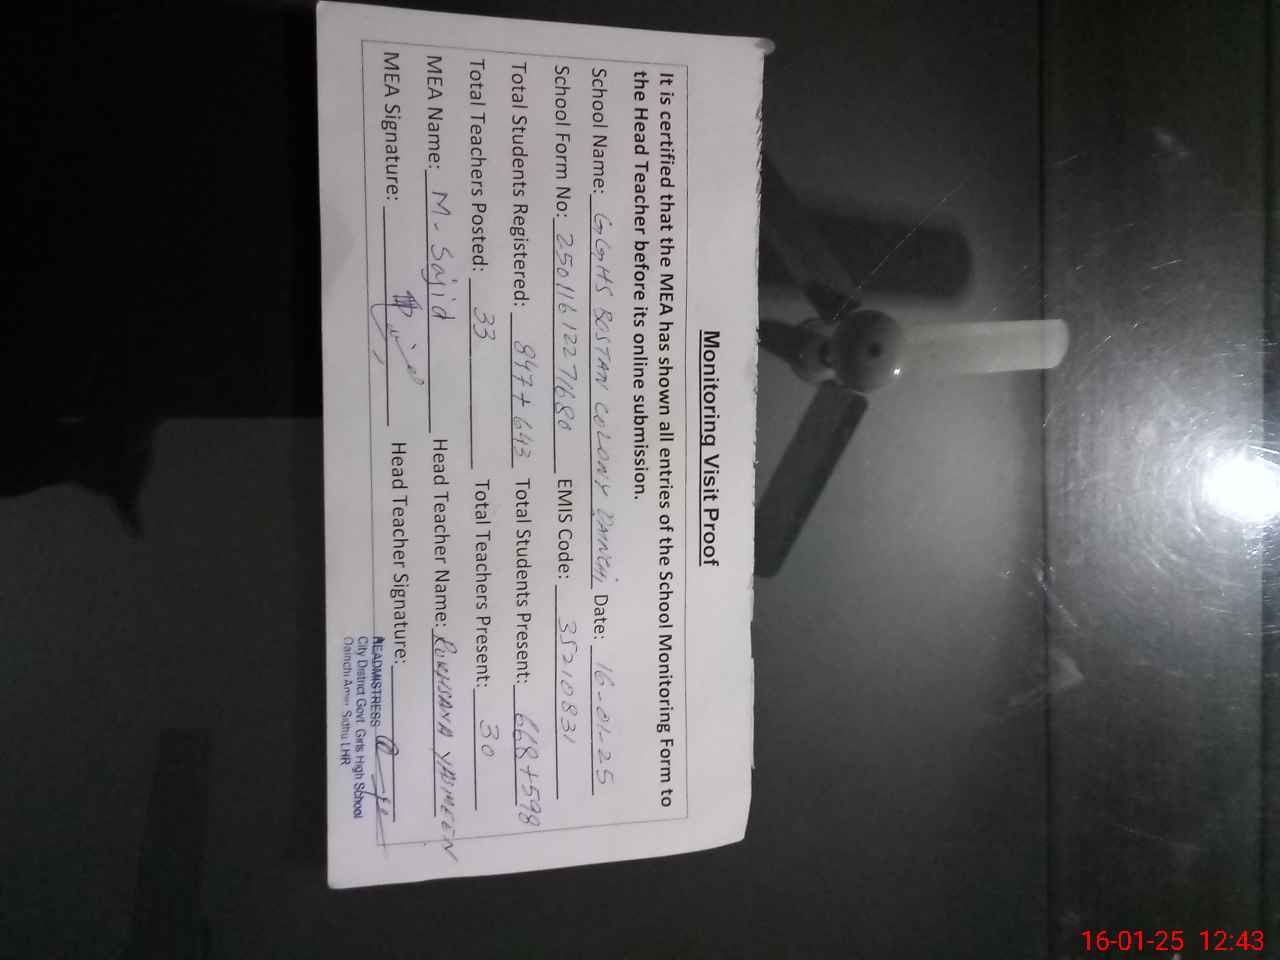 Monitoring Visit Proof
It is certified that the MEA has shown all entries of the School Monitoring Form to
the Head Teacher before its online submission.
School Name: GGHS BOSTAN COLONY DAINCHI Date: 16-01-25
School Form No: 25011612271680 EMIS Code: 35210831
Total Students Registered: 847+643 Total Students Present: 668+598
Total Teachers Posted: 33 Total Teachers Present: 30
MEA Name: M. Sajid Head Teacher Name: RUKHSANA YASMEEN
MEA Signature: Head Teacher Signature:
HEADMISTRESS
City District Govt. Girls High School
Dainchi Amer Sidhu LHR
16-01-25 12:43